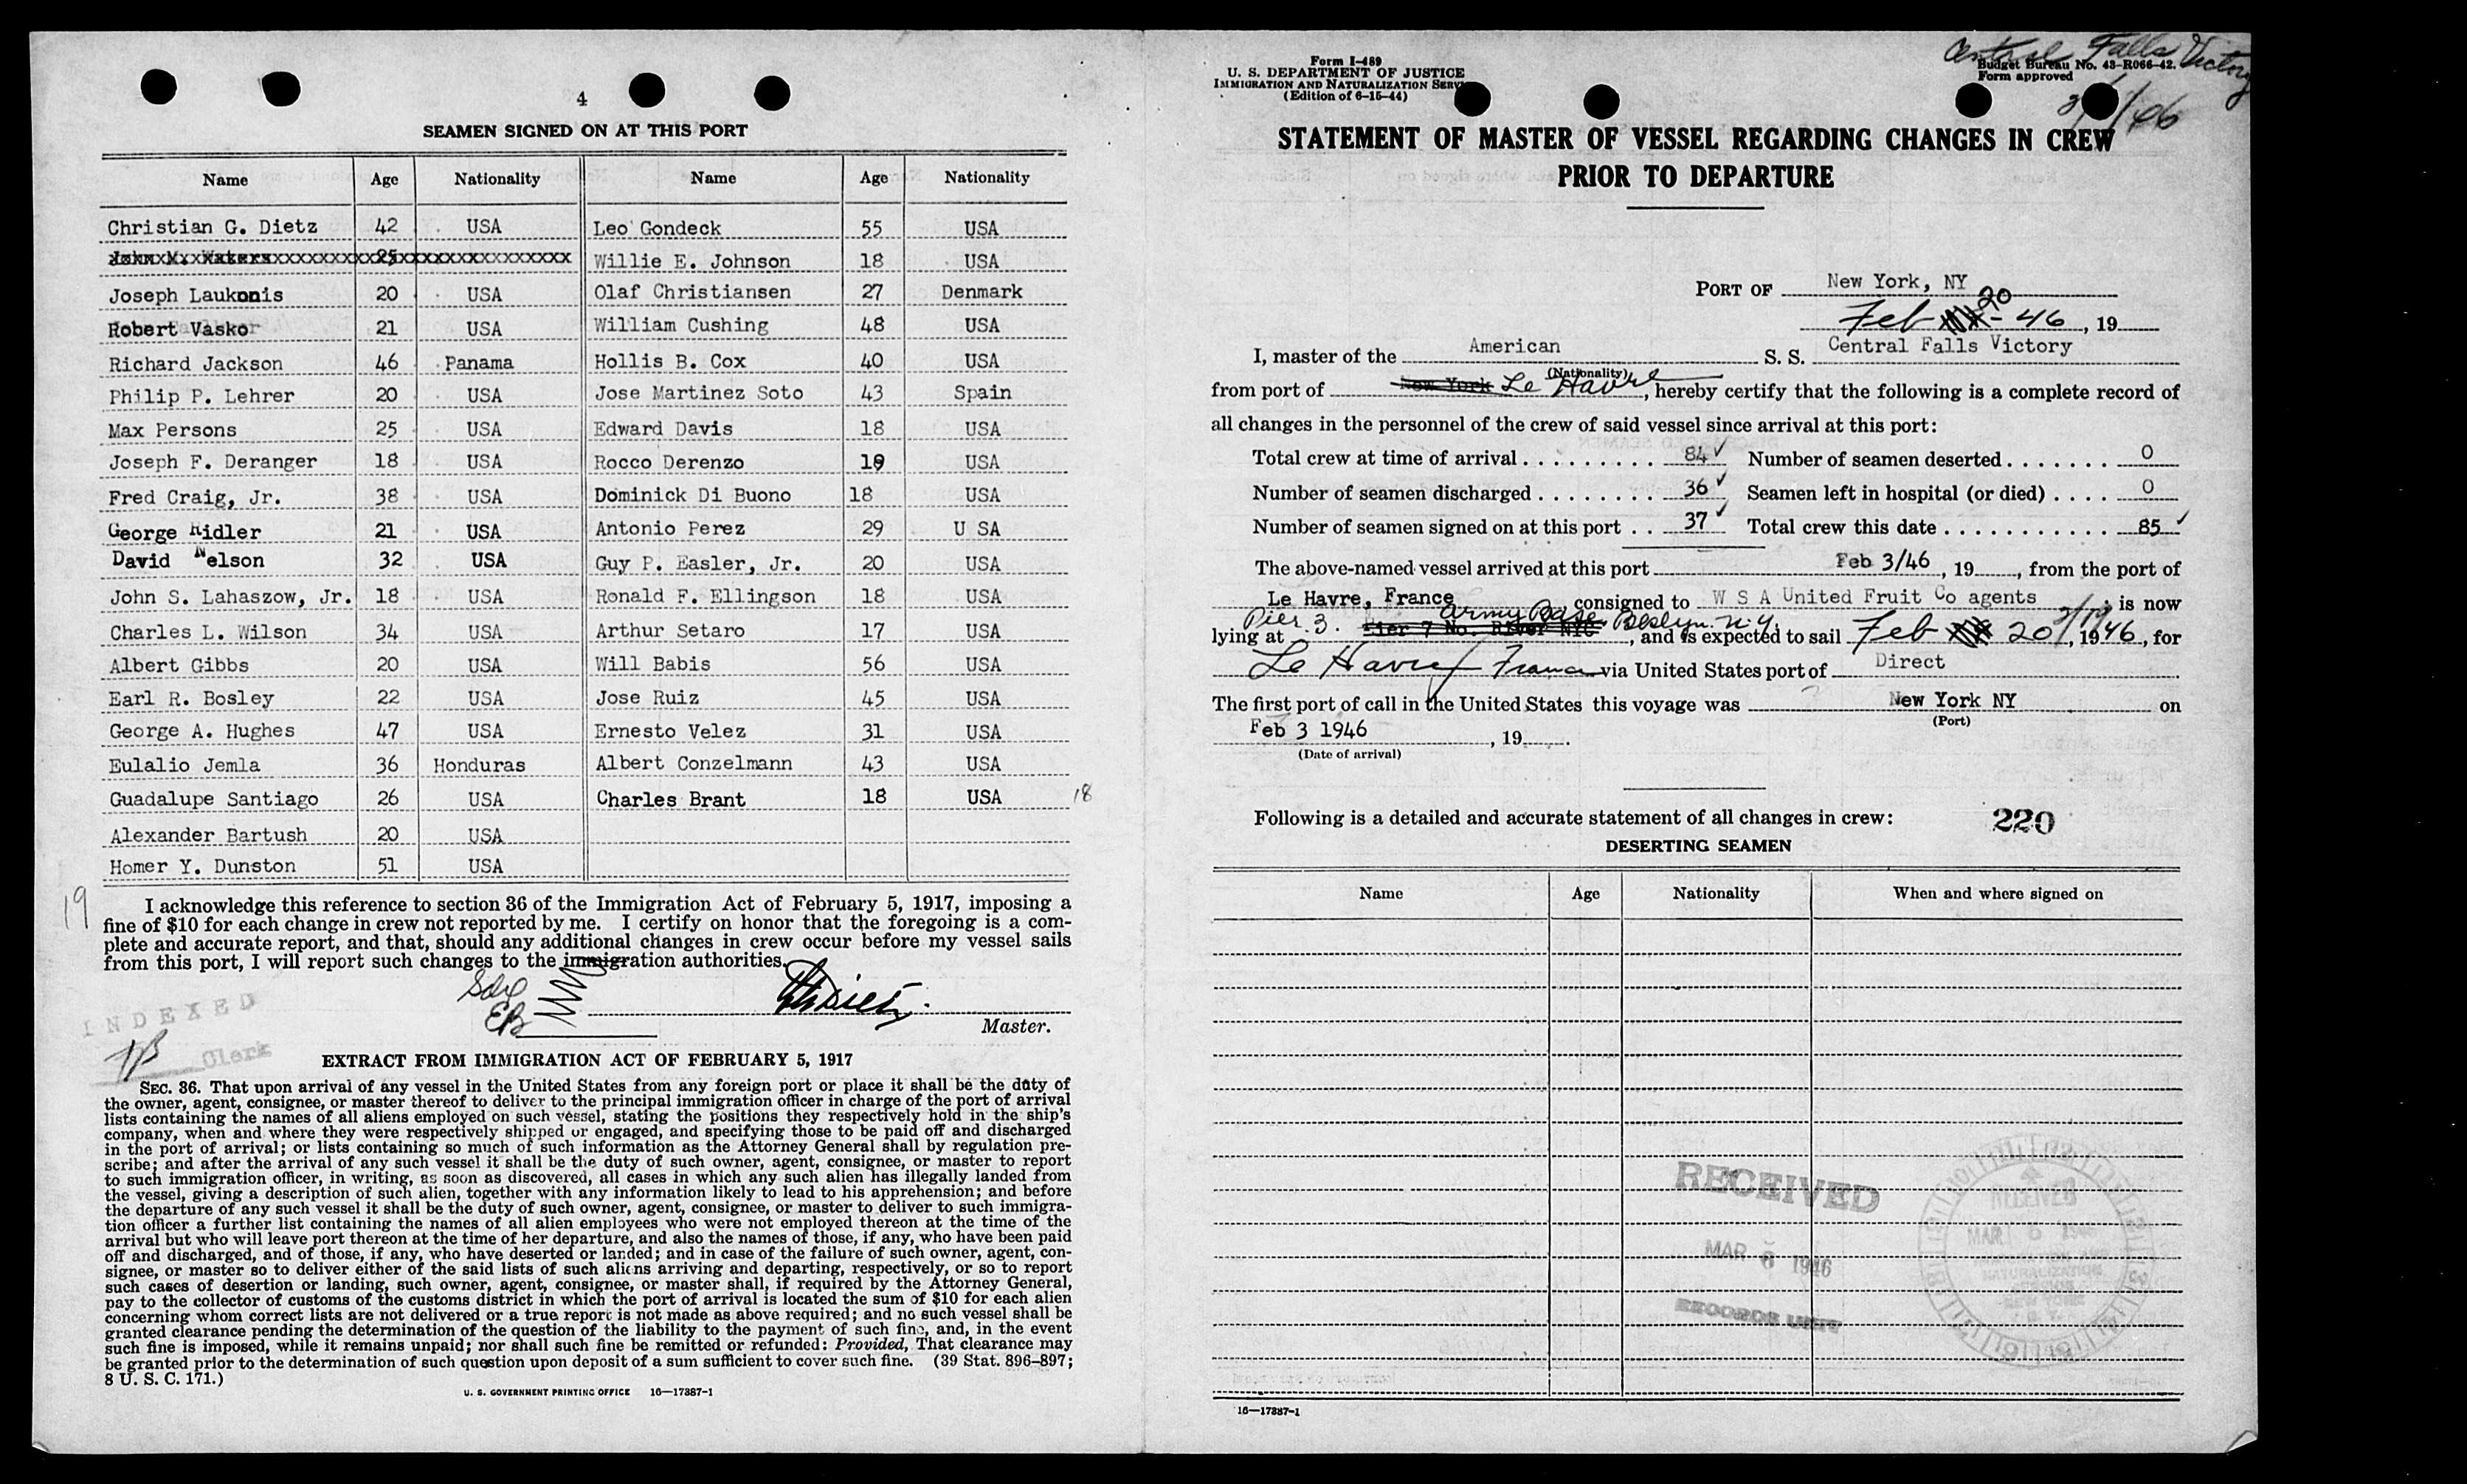 4
SEAMEN SIGNED ON AT THIS PORT
Name Age Nationality Name Age Nationality
Christian G. Dietz 42 USA Leo Gondeck 55 USA
John M. Waters 25 Willie E. Johnson 18 USA
Joseph Laukonis 20 USA Olaf Christiansen 27 Denmark
Robert Vasko 21 USA William Cushing 48 USA
Richard Jackson 46 Panama Hollis B. Cox 40 USA
Philip P. Lehrer 20 USA Jose Martinez Soto 43 Spain
Max Persons 25 USA Edward Davis 18 USA
Joseph F. Deranger 18 USA Rocco Derenzo 19 USA
Fred Craig, Jr. 38 USA Dominick Di Buono 18 USA
George Ridler 21 USA Antonio Perez 29 U SA
David Nelson 32 USA Guy P. Easler, Jr. 20 USA
John S. Lahaszow, Jr. 18 USA Ronald F. Ellingson 18 USA
Charles L. Wilson 34 USA Arthur Setaro 17 USA
Albert Gibbs 20 USA Will Babis 56 USA
Earl R. Bosley 22 USA Jose Ruiz 45 USA
George A. Hughes 47 USA Ernesto Velez 31 USA
Eulalio Jemla 36 Honduras Albert Conzelmann 43 USA
Guadalupe Santiago 26 USA Charles Brant 18 USA 18
Alexander Bartush 20 USA
Homer Y. Dunston 51 USA
19
I acknowledge this reference to section 36 of the Immigration Act of February 5, 1917, imposing a
fine of $10 for each change in crew not reported by me. I certify on honor that the foregoing is a com-
plete and accurate report, and that, should any additional changes in crew occur before my vessel sails
from this port, I will report such changes to the immigration authorities.
EB
Master.
INDEXED
Clerk
EXTRACT FROM IMMIGRATION ACT OF FEBRUARY 5, 1917
SEC. 36. That upon arrival of any vessel in the United States from any foreign port or place it shall be the duty of
the owner, agent, consignee, or master thereof to deliver to the principal immigration officer in charge of the port of arrival
lists containing the names of all aliens employed on such vessel, stating the positions they respectively hold in the ship's
company, when and where they were respectively shipped or engaged, and specifying those to be paid off and discharged
in the port of arrival; or lists containing so much of such information as the Attorney General shall by regulation pre-
scribe; and after the arrival of any such vessel it shall be the duty of such owner, agent, consignee, or master to report
to such immigration officer, in writing, as soon as discovered, all cases in which any such alien has illegally landed from
the vessel, giving a description of such alien, together with any information likely to lead to his apprehension; and before
the departure of any such vessel it shall be the duty of such owner, agent, consignee, or master to deliver to such immigra-
tion officer a further list containing the names of all alien employees who were not employed thereon at the time of the
arrival but who will leave port thereon at the time of her departure, and also the names of those, if any, who have been paid
off and discharged, and of those, if any, who have deserted or landed; and in case of the failure of such owner, agent, con-
signee, or master so to deliver either of the said lists of such aliens arriving and departing, respectively, or so to report
such cases of desertion or landing, such owner, agent, consignee, or master shall, if required by the Attorney General,
pay to the collector of customs of the customs district in which the port of arrival is located the sum of $10 for each alien
concerning whom correct lists are not delivered or a true report is not made as above required; and no such vessel shall be
granted clearance pending the determination of the question of the liability to the payment of such fine, and, in the event
such fine is imposed, while it remains unpaid; nor shall such fine be remitted or refunded: Provided, That clearance may
be granted prior to the determination of such question upon deposit of a sum sufficient to cover such fine. (39 Stat. 896-897;
8 U. S. C. 171.)
U. S. GOVERNMENT PRINTING OFFICE 16—17387-1
Form I-489
U. S. DEPARTMENT OF JUSTICE
IMMIGRATION AND NATURALIZATION SERV
(Edition of 6-15-44)
Central Falls Victory
Budget Bureau No. 43-R066-42.
Form approved
STATEMENT OF MASTER OF VESSEL REGARDING CHANGES IN CREW
PRIOR TO DEPARTURE
PORT OF New York, NY
Feb 20 - 46, 19
I, master of the American S. S. Central Falls Victory
(Nationality)
from port of New York Le Havre, hereby certify that the following is a complete record of
all changes in the personnel of the crew of said vessel since arrival at this port:
Total crew at time of arrival . . . . . . . . . 84 ✓ Number of seamen deserted . . . . . . . 0
Number of seamen discharged . . . . . . . . 36 ✓ Seamen left in hospital (or died) . . . . 0
Number of seamen signed on at this port . . 37 ✓ Total crew this date . . . . . . . . . . . 85 ✓
The above-named vessel arrived at this port Feb 3/46, 19, from the port of
Le Havre, France consigned to W S A United Fruit Co agents ; is now
lying at Pier 3. Pier 7 No. River NYC Army Base Bklyn. N.Y., and is expected to sail Feb 20, 1946, for
2/19
Le Havre France via United States port of Direct
The first port of call in the United States this voyage was New York NY on
(Port)
Feb 3 1946, 19.
(Date of arrival)
Following is a detailed and accurate statement of all changes in crew: 220
DESERTING SEAMEN
Name Age Nationality When and where signed on
RECEIVED
MAR 6 1946
RECORDS UNIT
RECEIVED
MAR 6 1946
16—17387-1